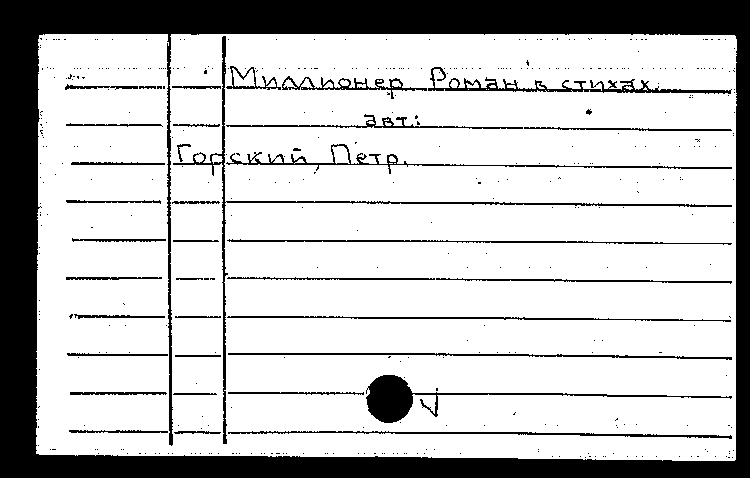 Миллионер Роман в стихах.
авт.:
Горский, Петр.